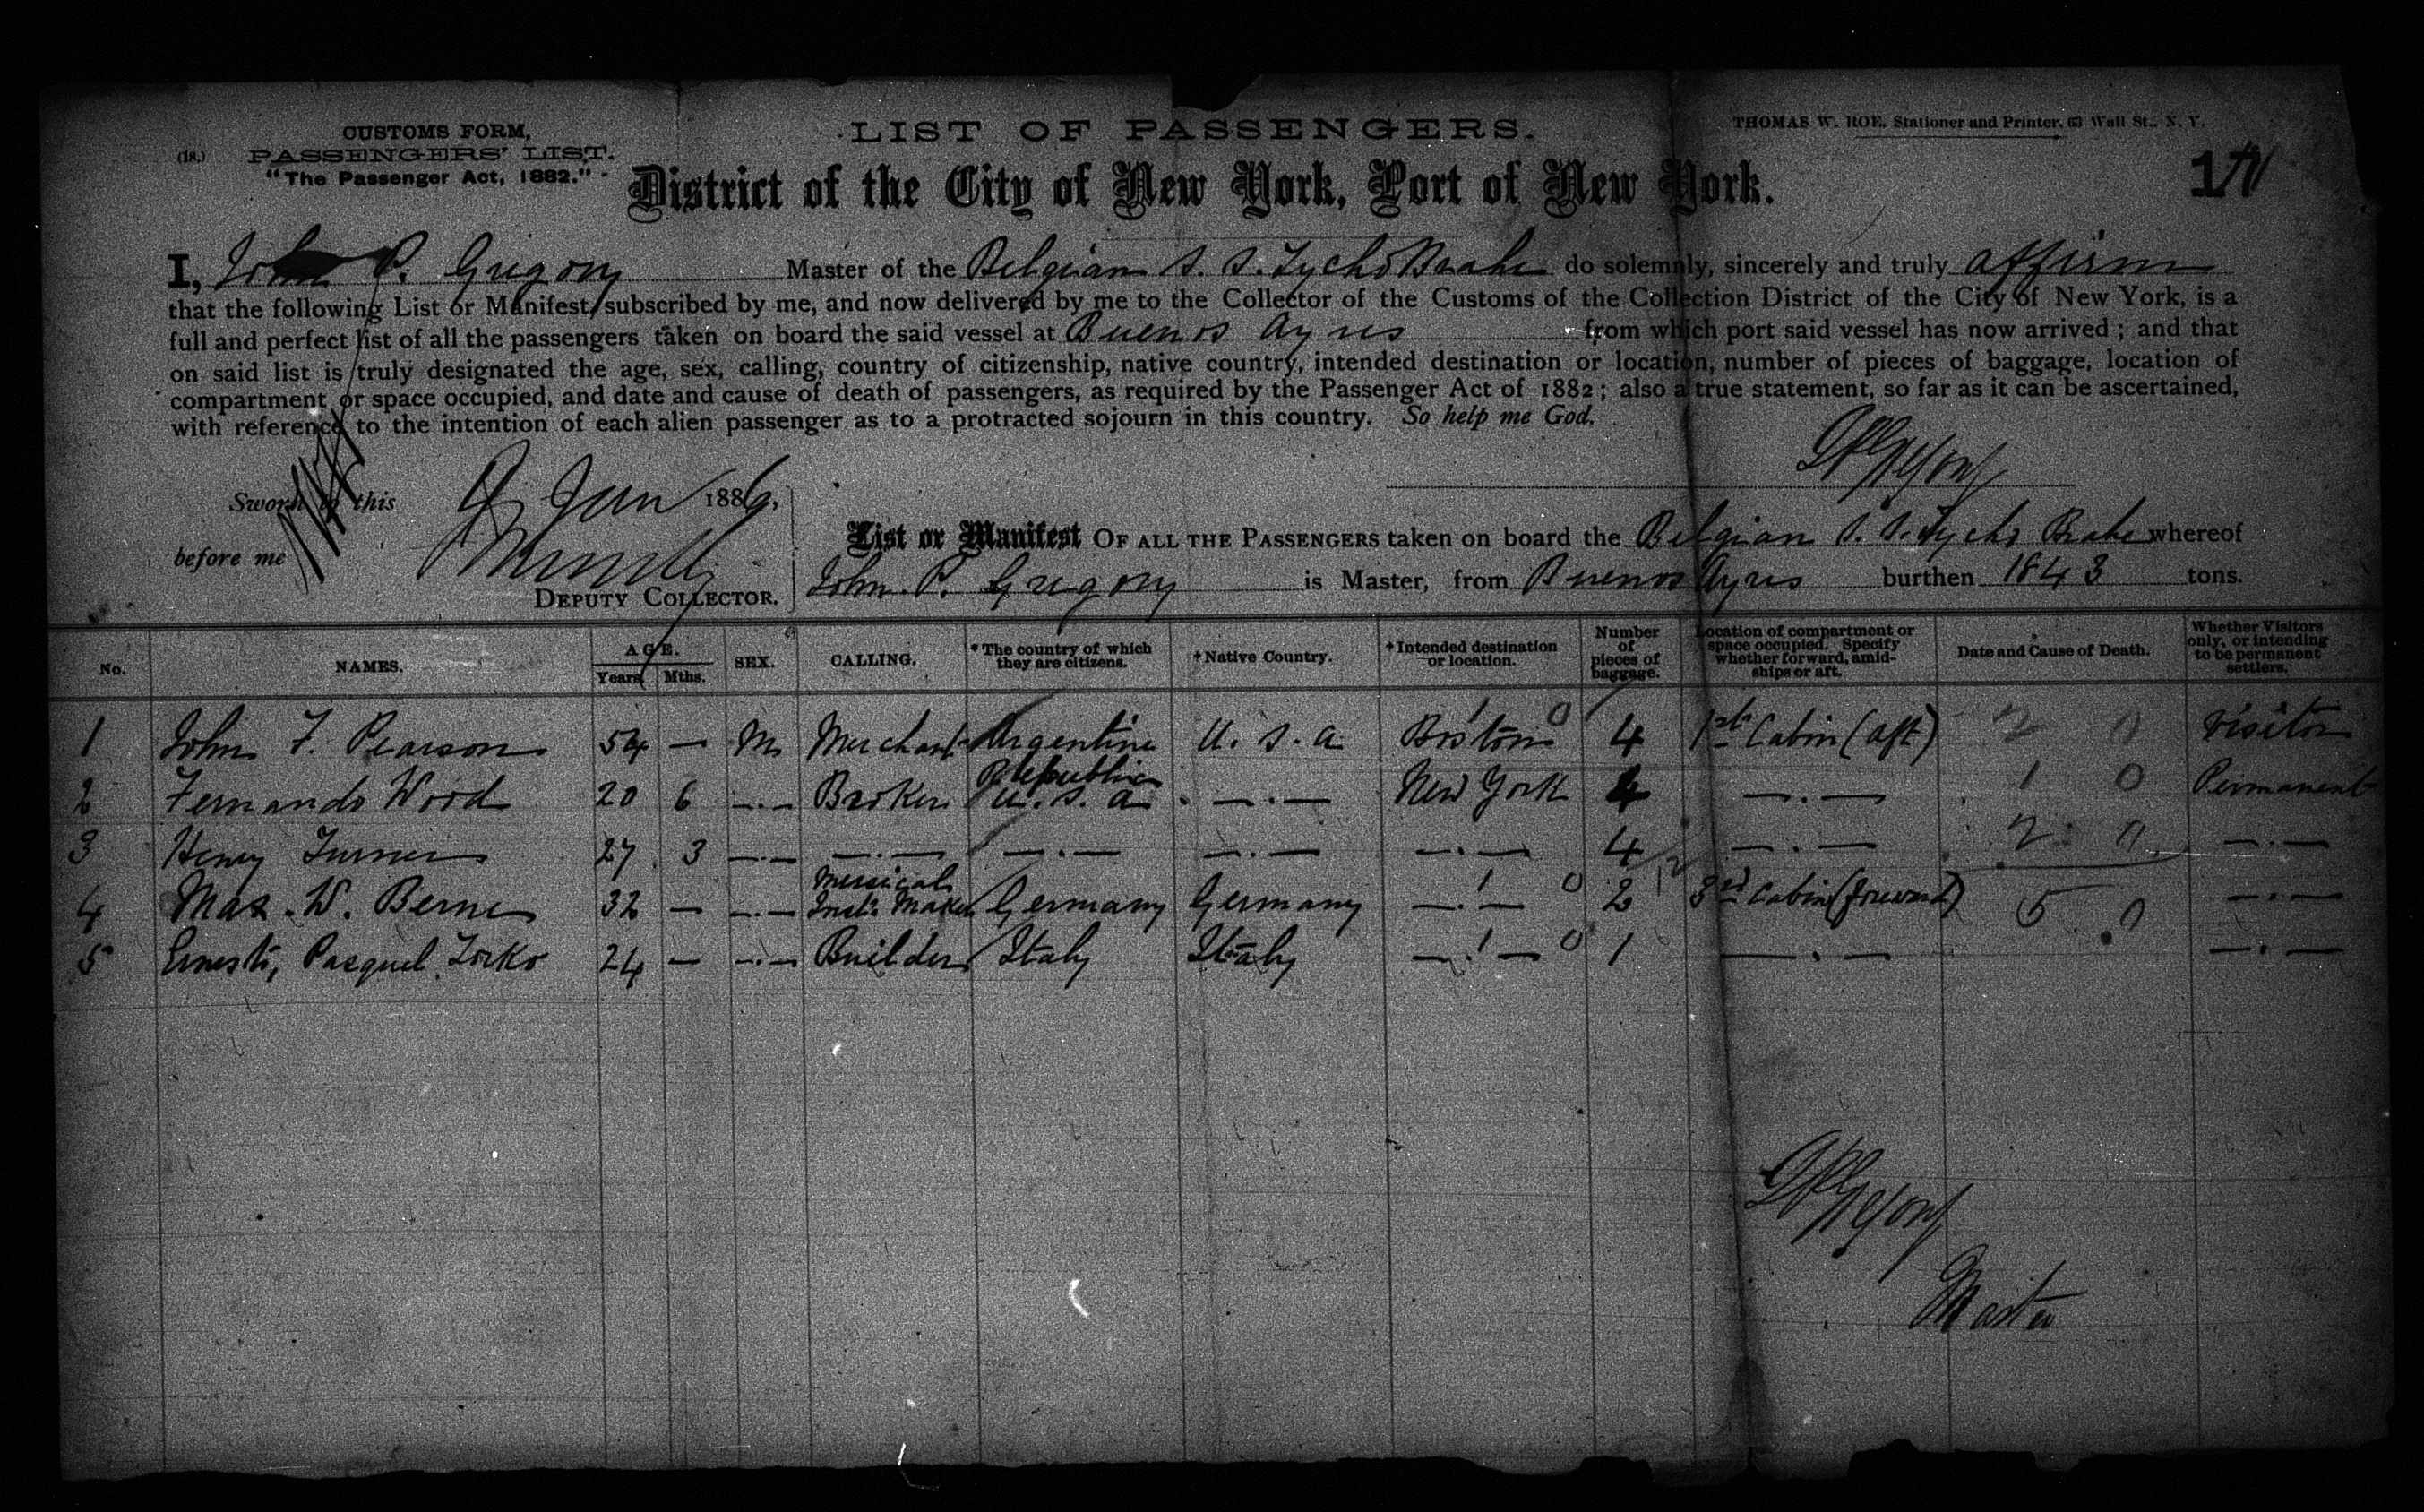 CUSTOMS FORM,
(18.) PASSENGERS' LIST.
"The Passenger Act, 1882."
LIST OF PASSENGERS.
THOMAS W. ROE, Stationer and Printer, 63 Wall St., N. Y.
District of the City of New York, Port of New York.
I, John P. Gregory Master of the Belgian S. S. Tycho Brahe do solemnly, sincerely and truly affirm
that the following List or Manifest, subscribed by me, and now delivered by me to the Collector of the Customs of the Collection District of the City of New York, is a
full and perfect list of all the passengers taken on board the said vessel at Buenos Ayres from which port said vessel has now arrived; and that
on said list is truly designated the age, sex, calling, country of citizenship, native country, intended destination or location, number of pieces of baggage, location of
compartment or space occupied, and date and cause of death of passengers, as required by the Passenger Act of 1882; also a true statement, so far as it can be ascertained,
with reference to the intention of each alien passenger as to a protracted sojourn in this country. So help me God.
Sworn to this 9 Jan 1886,
before me
DEPUTY COLLECTOR.
List or Manifest OF ALL THE PASSENGERS taken on board the Belgian S. S. Tycho Brahe whereof
John. P. Gregory is Master, from Buenos Ayres burthen 1843 tons.
No. NAMES. AGE. Years Mths. SEX. CALLING. *The country of which they are citizens. +Native Country. +Intended destination or location. Number of pieces of baggage. Location of compartment or space occupied. Specify whether forward, amidships or aft. Date and Cause of Death. Whether Visitors only, or intending to be permanent settlers.
1 John F. Pearson 54 — M Merchant Argentine Republic U. S. A. Boston 4 1st Cabin (aft) Visitor
2 Fernando Wood 20 6 —.— Broker U. S. A. —.— New York 4 —.— Permanent
3 Henry Turner 27 3 —.— —.— —.— —.— —.— 4 —.— —.—
4 Max. W. Berne 32 — —.— Musical Inst. Maker Germany Germany —.— 2 3rd Cabin (forward) —.—
5 Ernesto, Pasquel 24 — —.— Builder Italy Italy —.— 1 —.— —.—
Master